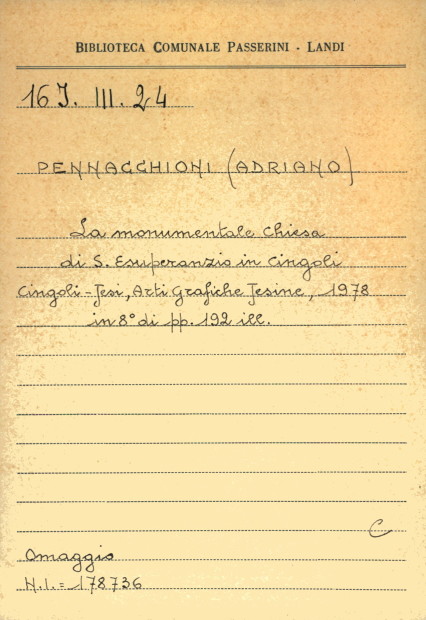 BIBLIOTECA COMUNALE PASSERINI - LANDI
16 J. III. 24
PENNACCHIONI (ADRIANO)
La monumentale Chiesa
di S. Esuperanzio in Cingoli
Cingoli - Jesi, Arti Grafiche Jesine, 1978
in 8° di pp. 192 ill.
C
Omaggio
N.I. = 178736